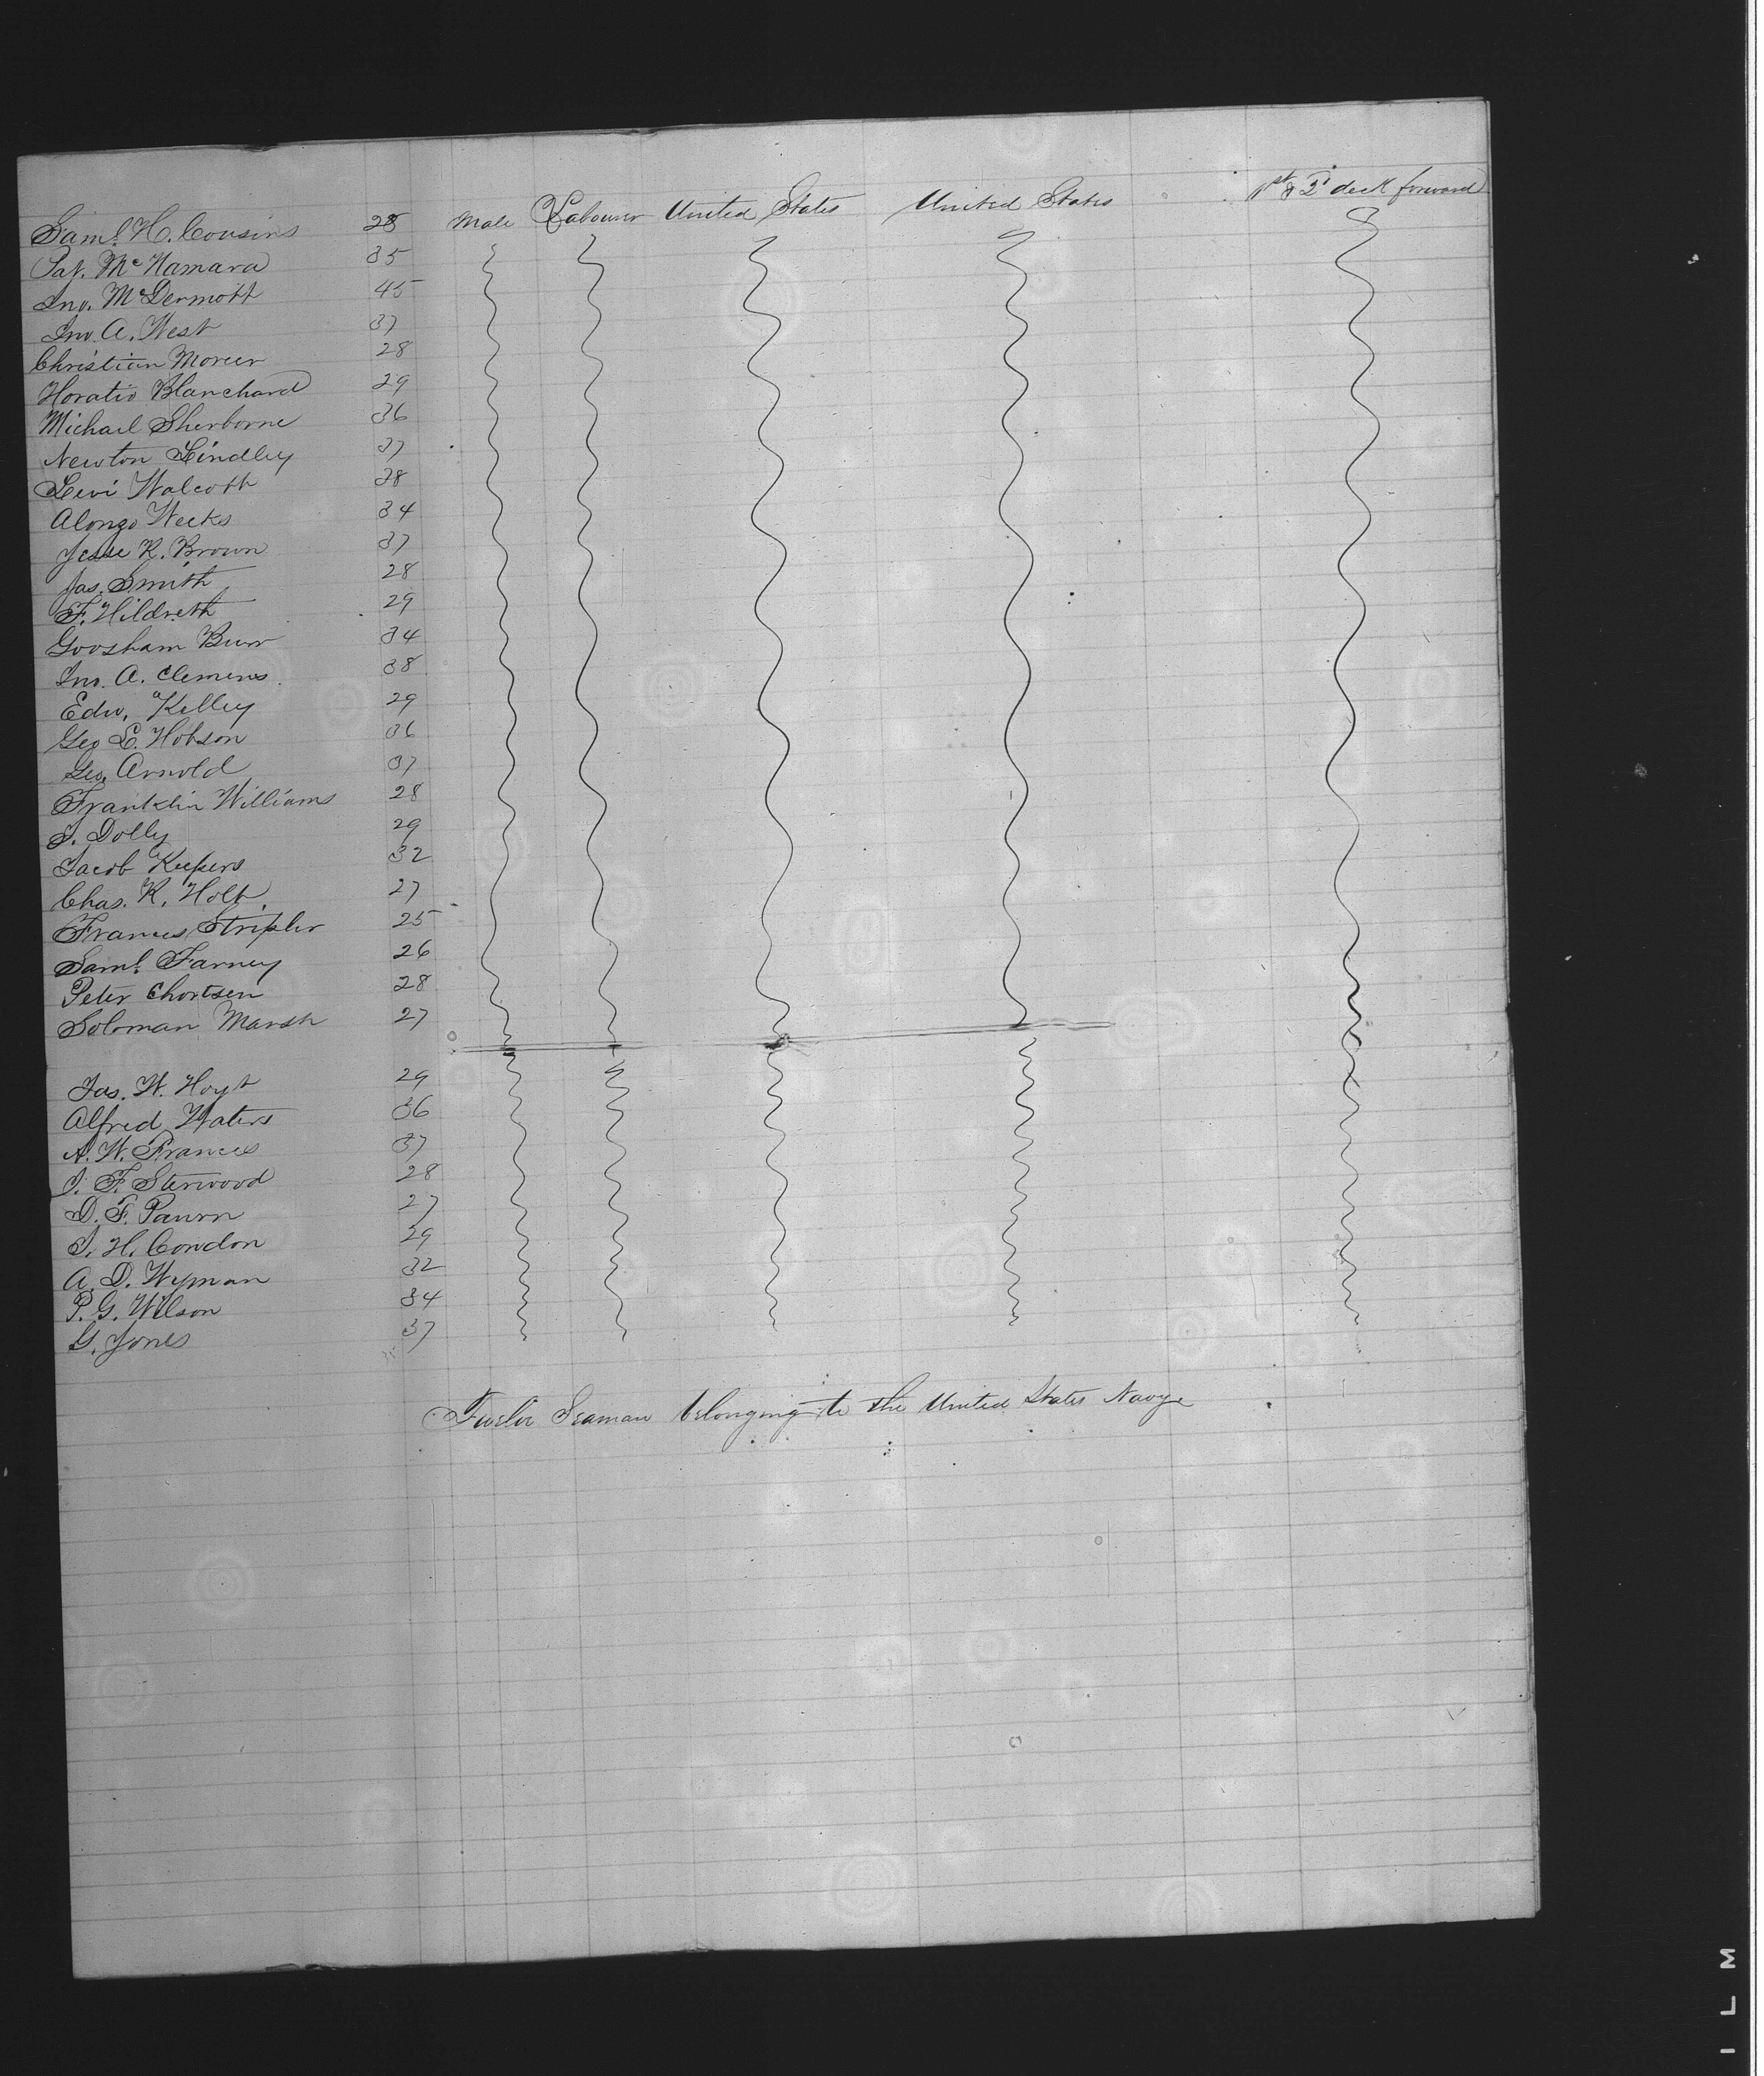 Saml. H. Cousins 28 Male Labourer United States United States 1st & 2d deck forward
Pat. McNamara 35
Jno. McDermott 45
Jno. A. West 37
Christian Morier 28
Horatio Blanchard 29
Michael Sherborne 36
Newton Lindley 37
Levi Walcott 28
Alonzo Weeks 34
Jesse R. Brown 37
Jas. Smith 28
F. Hildreth 29
Goosham Burr 34
Jno. A. Clemens 38
Edw. Kelley 29
Geo E. Hobson 36
Geo. Arnold 37
Franklin Williams 28
J. Dolly 29
Jacob Keepers 32
Chas. R. Holt 27
Frances Stripler 25
Saml. Farney 26
Peter Chortsen 28
Soloman Marsh 27
Jas. W. Hoyt 29
Alfred Waters 36
A. W. Frances 37
J. F. Sterwood 28
D. F. 27
J. H. Condon 29
A. D. Wyman 32
P. G. Wilson 34
G. Jones 37
35
Twelve Seaman belonging to the United States Navy
I L M